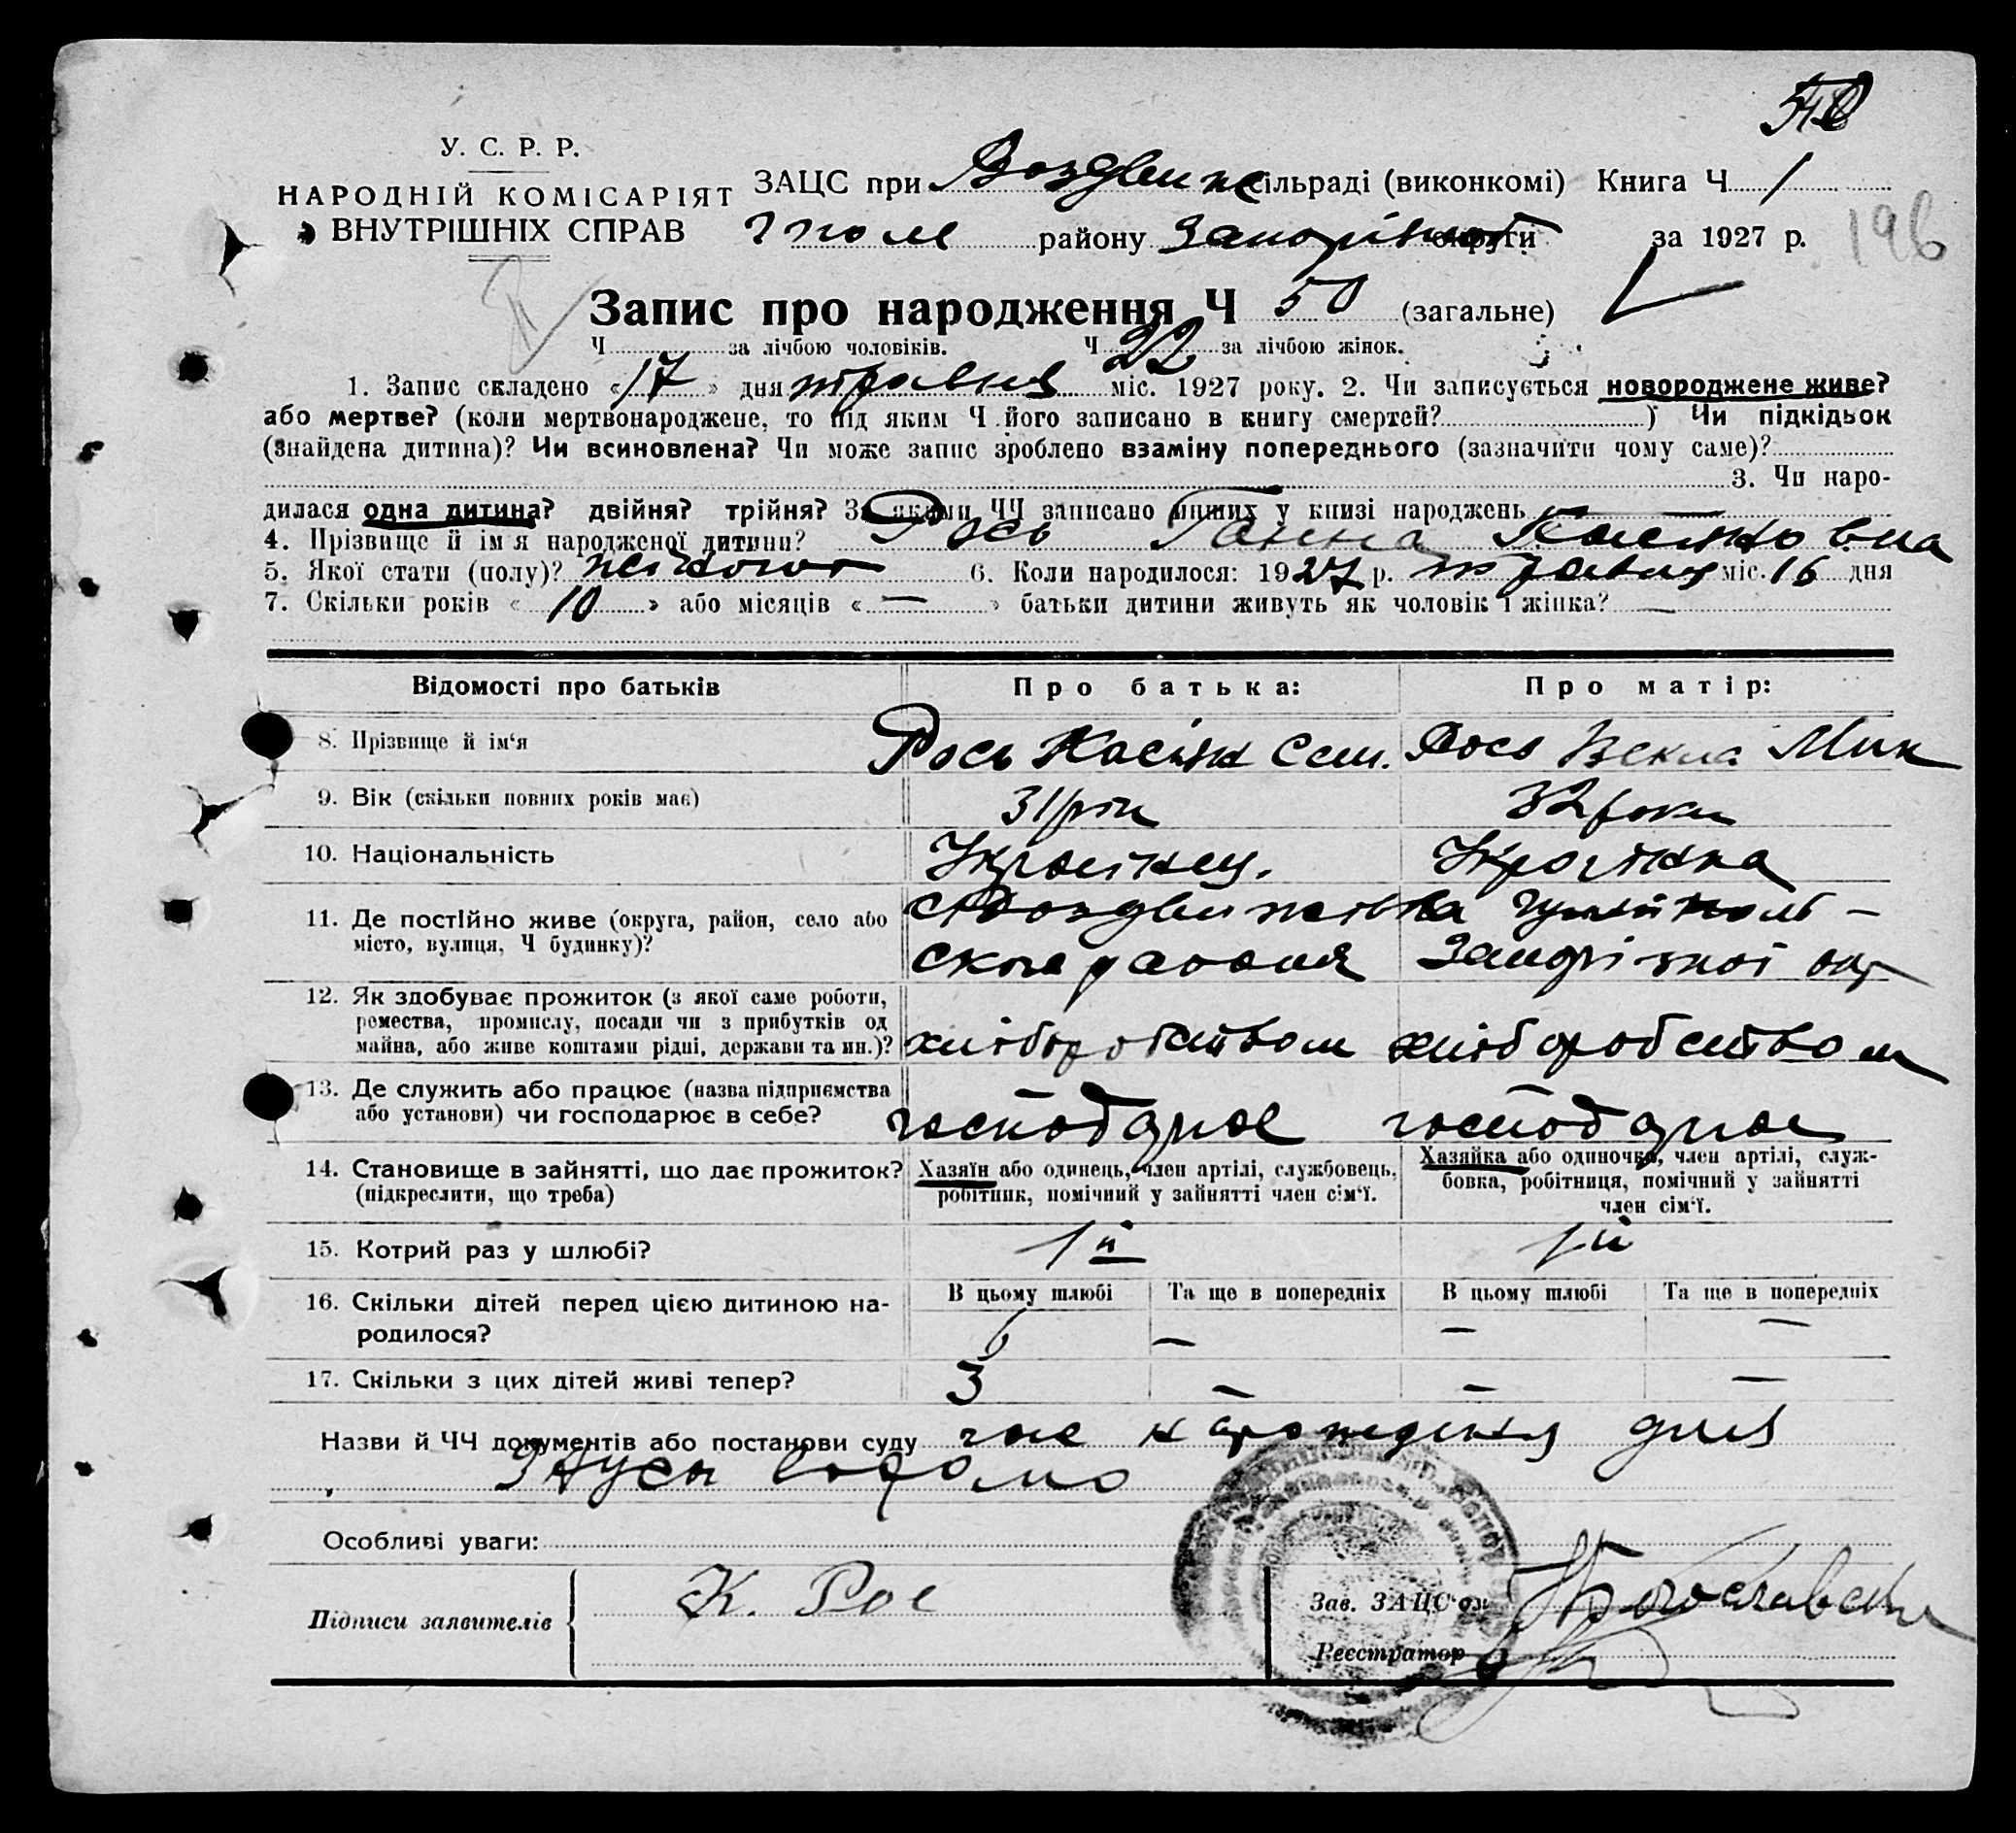 У. С. Р. Р.
НАРОДНІЙ КОМІСАРІЯТ
ВНУТРІШНІХ СПРАВ
ЗАЦС при Воздвиж сільраді (виконкомі) Книга Ч. 1
району округи за 1927 р.
196
Запис про народження Ч 50 (загальне)
Ч за лічбою чоловіків. Ч 22 за лічбою жінок.
1. Запис складено «17» дня травня міс. 1927 року. 2. Чи записується новороджене живе?
або мертве? (коли мертвонароджене, то під яким Ч його записано в книгу смертей? ) Чи підкідьок
(знайдена дитина)? Чи всиновлена? Чи може запис зроблено взаміну попереднього (зазначити чому саме)?
3. Чи наро-
дилася одна дитина? двійня? трійня? За якими ЧЧ записано инших у книзі народжень
4. Прізвище й ім'я народженої дитини? Рось Ганна Касяновна
5. Якої стати (полу)? жіночої 6. Коли народилося: 1927 р. травня міс. 16 дня
7. Скільки років «10» або місяців «—» батьки дитини живуть як чоловік і жінка? —
Відомості про батьків Про батька: Про матір:
8. Прізвище й ім'я Рось Касян Сем. Рось Векла Мик
9. Вік (скільки повних років має) 31 рік 32 роки
10. Національність Українец. Українка
11. Де постійно живе (округа, район, село або
місто, вулиця, Ч будинку)?
с Воздвижівка Гуляйполь-
ского района Запорізкої окр
12. Як здобуває прожиток (з якої саме роботи,
ремества, промислу, посади чи з прибутків од
майна, або живе коштами рідні, держави та ин.)? хліборобством хліборобством
13. Де служить або працює (назва підприємства
або установи) чи господарює в себе? господарює господарює
14. Становище в зайнятті, що дає прожиток?
(підкреслити, що треба)
Хазяїн або одинець, член артілі, службовець,
робітник, помічний у зайнятті член сім'ї.
Хазяйка або одиночка, член артілі, служ-
бовка, робітниця, помічний у зайнятті
член сім'ї.
15. Котрий раз у шлюбі? 1й 1й
В цьому шлюбі Та ще в попередніх В цьому шлюбі Та ще в попередніх
16. Скільки дітей перед цією дитиною на-
родилося? 6 — — —
17. Скільки з цих дітей живі тепер? 3 — — —
Назви й ЧЧ документів або постанови суду
Особливі уваги:
Підписи заявителів К. Рос
Зав. ЗАЦС'ом
Реєстратор